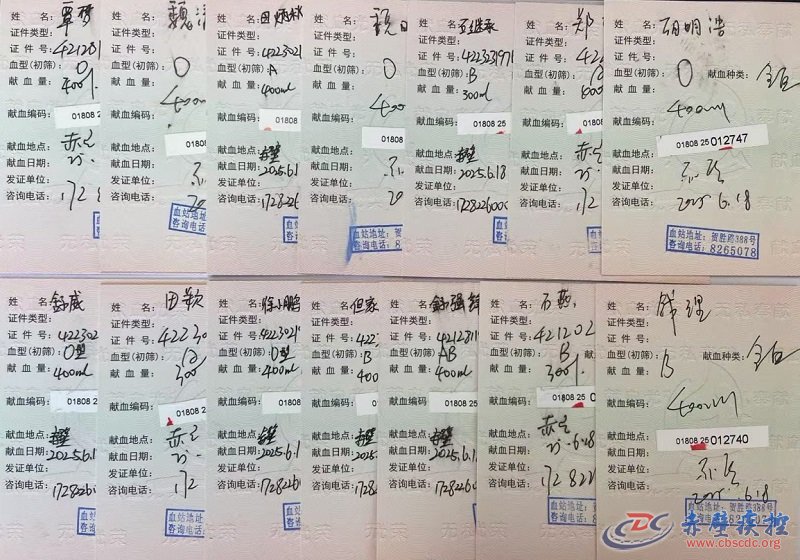 姓 名：覃
证件类型：
证 件 号：421281
血型(初筛)：O
献 血 量：400ml
献血编码：
献血地点：赤
献血日期：
发证单位：
咨询电话：172
姓 名：魏
证件类型：
证 件 号：
血型(初筛) O
献 血 量： 400
献血编码：
01808
献血地点：
献血日期：
发证单位：
咨询电话：20
姓 名：田
证件类型：
证 件 号：4223021
血型(初筛)：A
献 血 量：400ml
献血编码：
01808 25
献血地点：赤壁
献血日期：2025.6.1
发证单位：
咨询电话：1728226
血站地址：
咨询电话：
姓 名：魏
证件类型：
证 件 号：
血型(初筛) O
献 血 量： 400
献血编码：
01808
献血地点：
献血日期：
发证单位：
咨询电话：20
血站地址：贺
咨询电话：8
姓 名：石继承
证件类型：
证 件 号：4223231971
血型(初筛)：B
献 血 量：300ml
献血编码：
01808 25
献血地点：赤壁
献血日期：2025.6.18
发证单位：
咨询电话：172822600
血站地址：
咨询电话：
姓 名：郑
证件类型：
证 件 号：42
血型(初筛)：
献 血 量：
献血编码：
01808
献血地点：赤
献血日期：
发证单位：
咨询电话：172
姓 名：胡明浩
证件类型：
证 件 号：
血型(初筛) O 献血种类：全血
献 血 量： 400ml
献血编码：
01808 25 012747
献血地点：赤壁
献血日期：
发证单位：2025.6.18
咨询电话：
血站地址：贺胜路388号
咨询电话：8265078
姓 名：舒威
证件类型：
证 件 号：4223021
血型(初筛)：O型
献 血 量：400ml
献血编码：
01808 2
献血地点：赤壁
献血日期：2025.6.1
发证单位：
咨询电话：1728226
姓 名：田颖
证件类型：
证 件 号：42230
血型(初筛)：
献 血 量：300
献血编码：
01808 2
献血地点：赤
献血日期：
发证单位：
咨询电话：172
血站地址：
咨询电话：
姓 名：徐小鹏
证件类型：
证 件 号：4223021
血型(初筛)：O型
献 血 量：400ml
献血编码：
01808
献血地点：赤壁
献血日期：2025.6.1
发证单位：
咨询电话：1728226
姓 名：但家
证件类型：
证 件 号：422
血型(初筛)：B
献 血 量：400
献血编码：
01808
献血地点：赤壁
献血日期：2025
发证单位：
咨询电话：1728
姓 名：舒强
证件类型：
证 件 号：4212811
血型(初筛)：AB
献 血 量：400ml
献血编码：
01808 25
献血地点：赤壁
献血日期：2025.6.1
发证单位：
咨询电话：1728226
血站地址：
咨询电话：
姓 名：石
证件类型：
证 件 号：421202
血型(初筛)：B
献 血 量：300ml
献血编码：
01808 25
献血地点：赤
献血日期：25.6.18
发证单位：
咨询电话：172822
血站地址：
咨询电话：
姓 名：成理
证件类型：
证 件 号：
血型(初筛)：B 献血种类：全血
献 血 量： 400ml
献血编码：
01808 25 012740
献血地点：赤壁
献血日期：
发证单位：2025.6.18
咨询电话：
血站地址：贺胜路388号
咨询电话：8265078
CDC 赤壁疾控
www.cbscdc.org